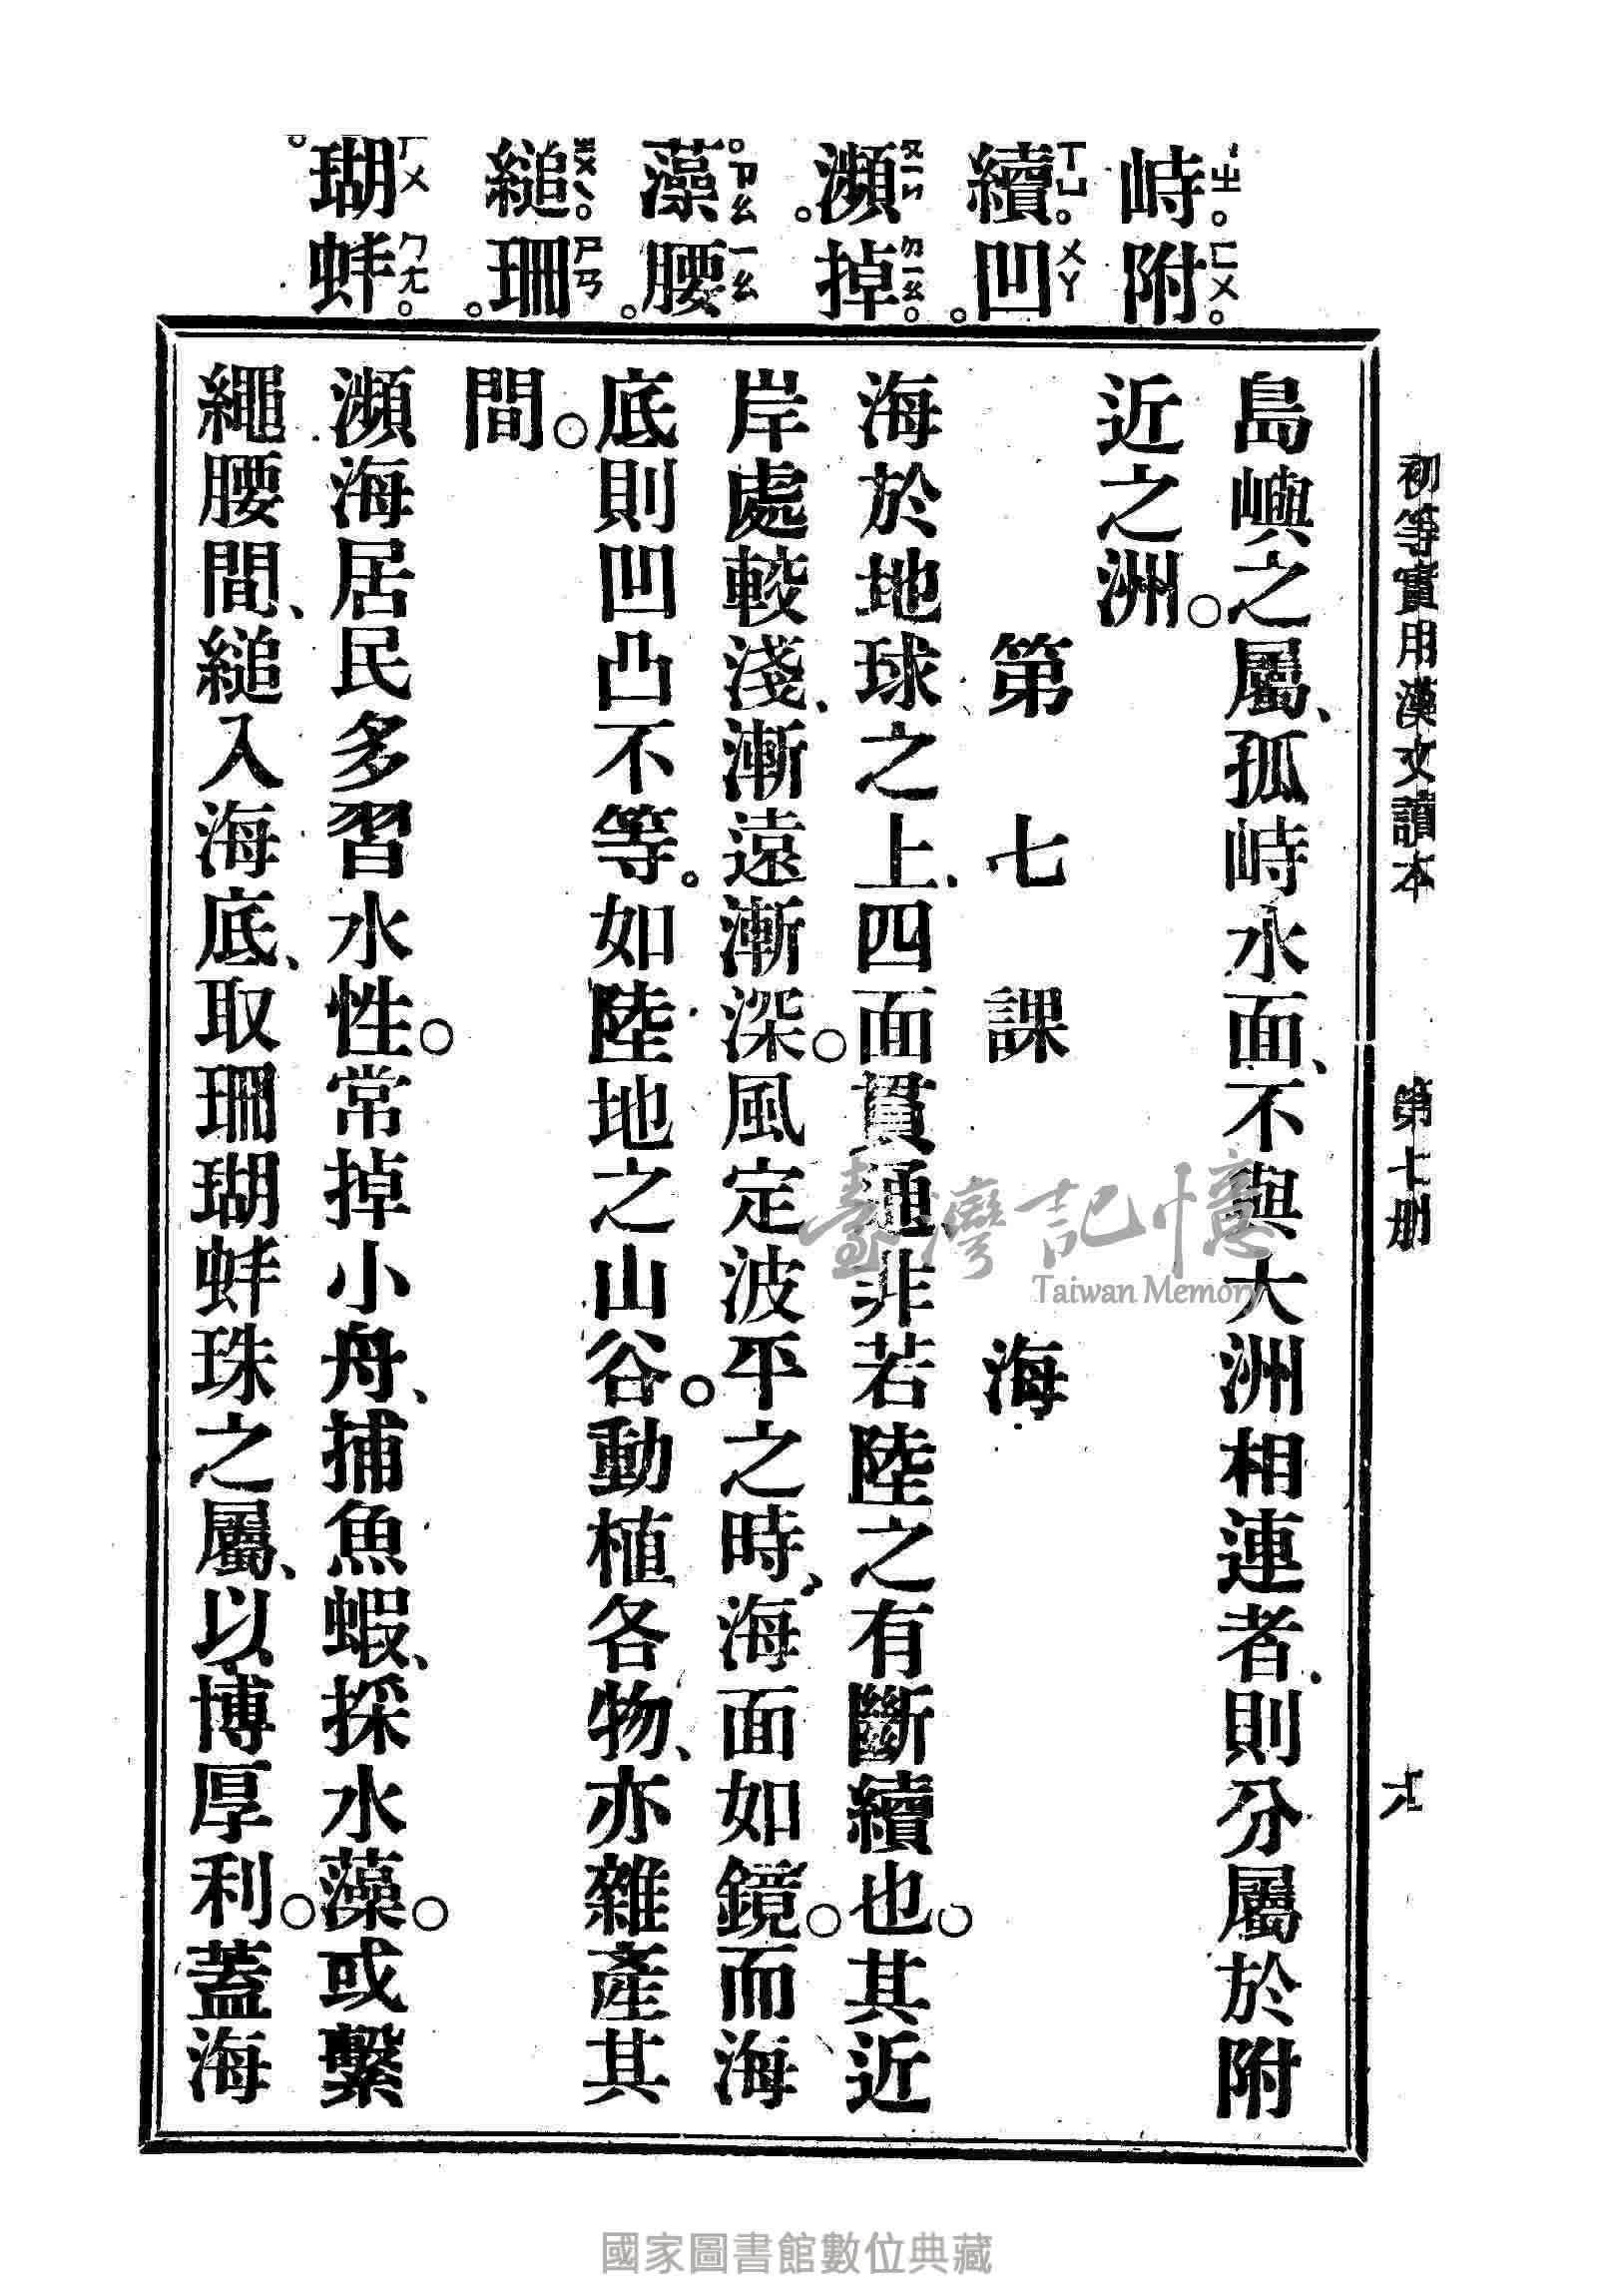 初等實用漢文讀本　第七册　六
峙ㄓ。附ㄈㄨ。
續ㄒㄩ。凹ㄨㄚ。
瀕ㄆㄧㄣ。掉ㄉㄧㄠ。
藻ㄗㄠ。腰ㄧㄠ。
縋ㄓㄨㄟ。珊ㄕㄢ。
瑚ㄏㄨ。蚌ㄅㄤ。
島嶼之屬、孤峙水面、不與大洲相連者、則分屬於附
近之洲。
第七課　海
海於地球之上、四面貫通、非若陸之有斷續也。其近
岸處較淺、漸遠漸深。風定波平之時、海面如鏡。而海
底則凹凸不等。如陸地之山谷。動植各物、亦雜產其
間。
瀕海居民多習水性。常掉小舟、捕魚蝦、採水藻。或繫
繩腰間、縋入海底、取珊瑚蚌珠之屬、以博厚利。蓋海
臺灣記憶
Taiwan Memory
國家圖書館數位典藏